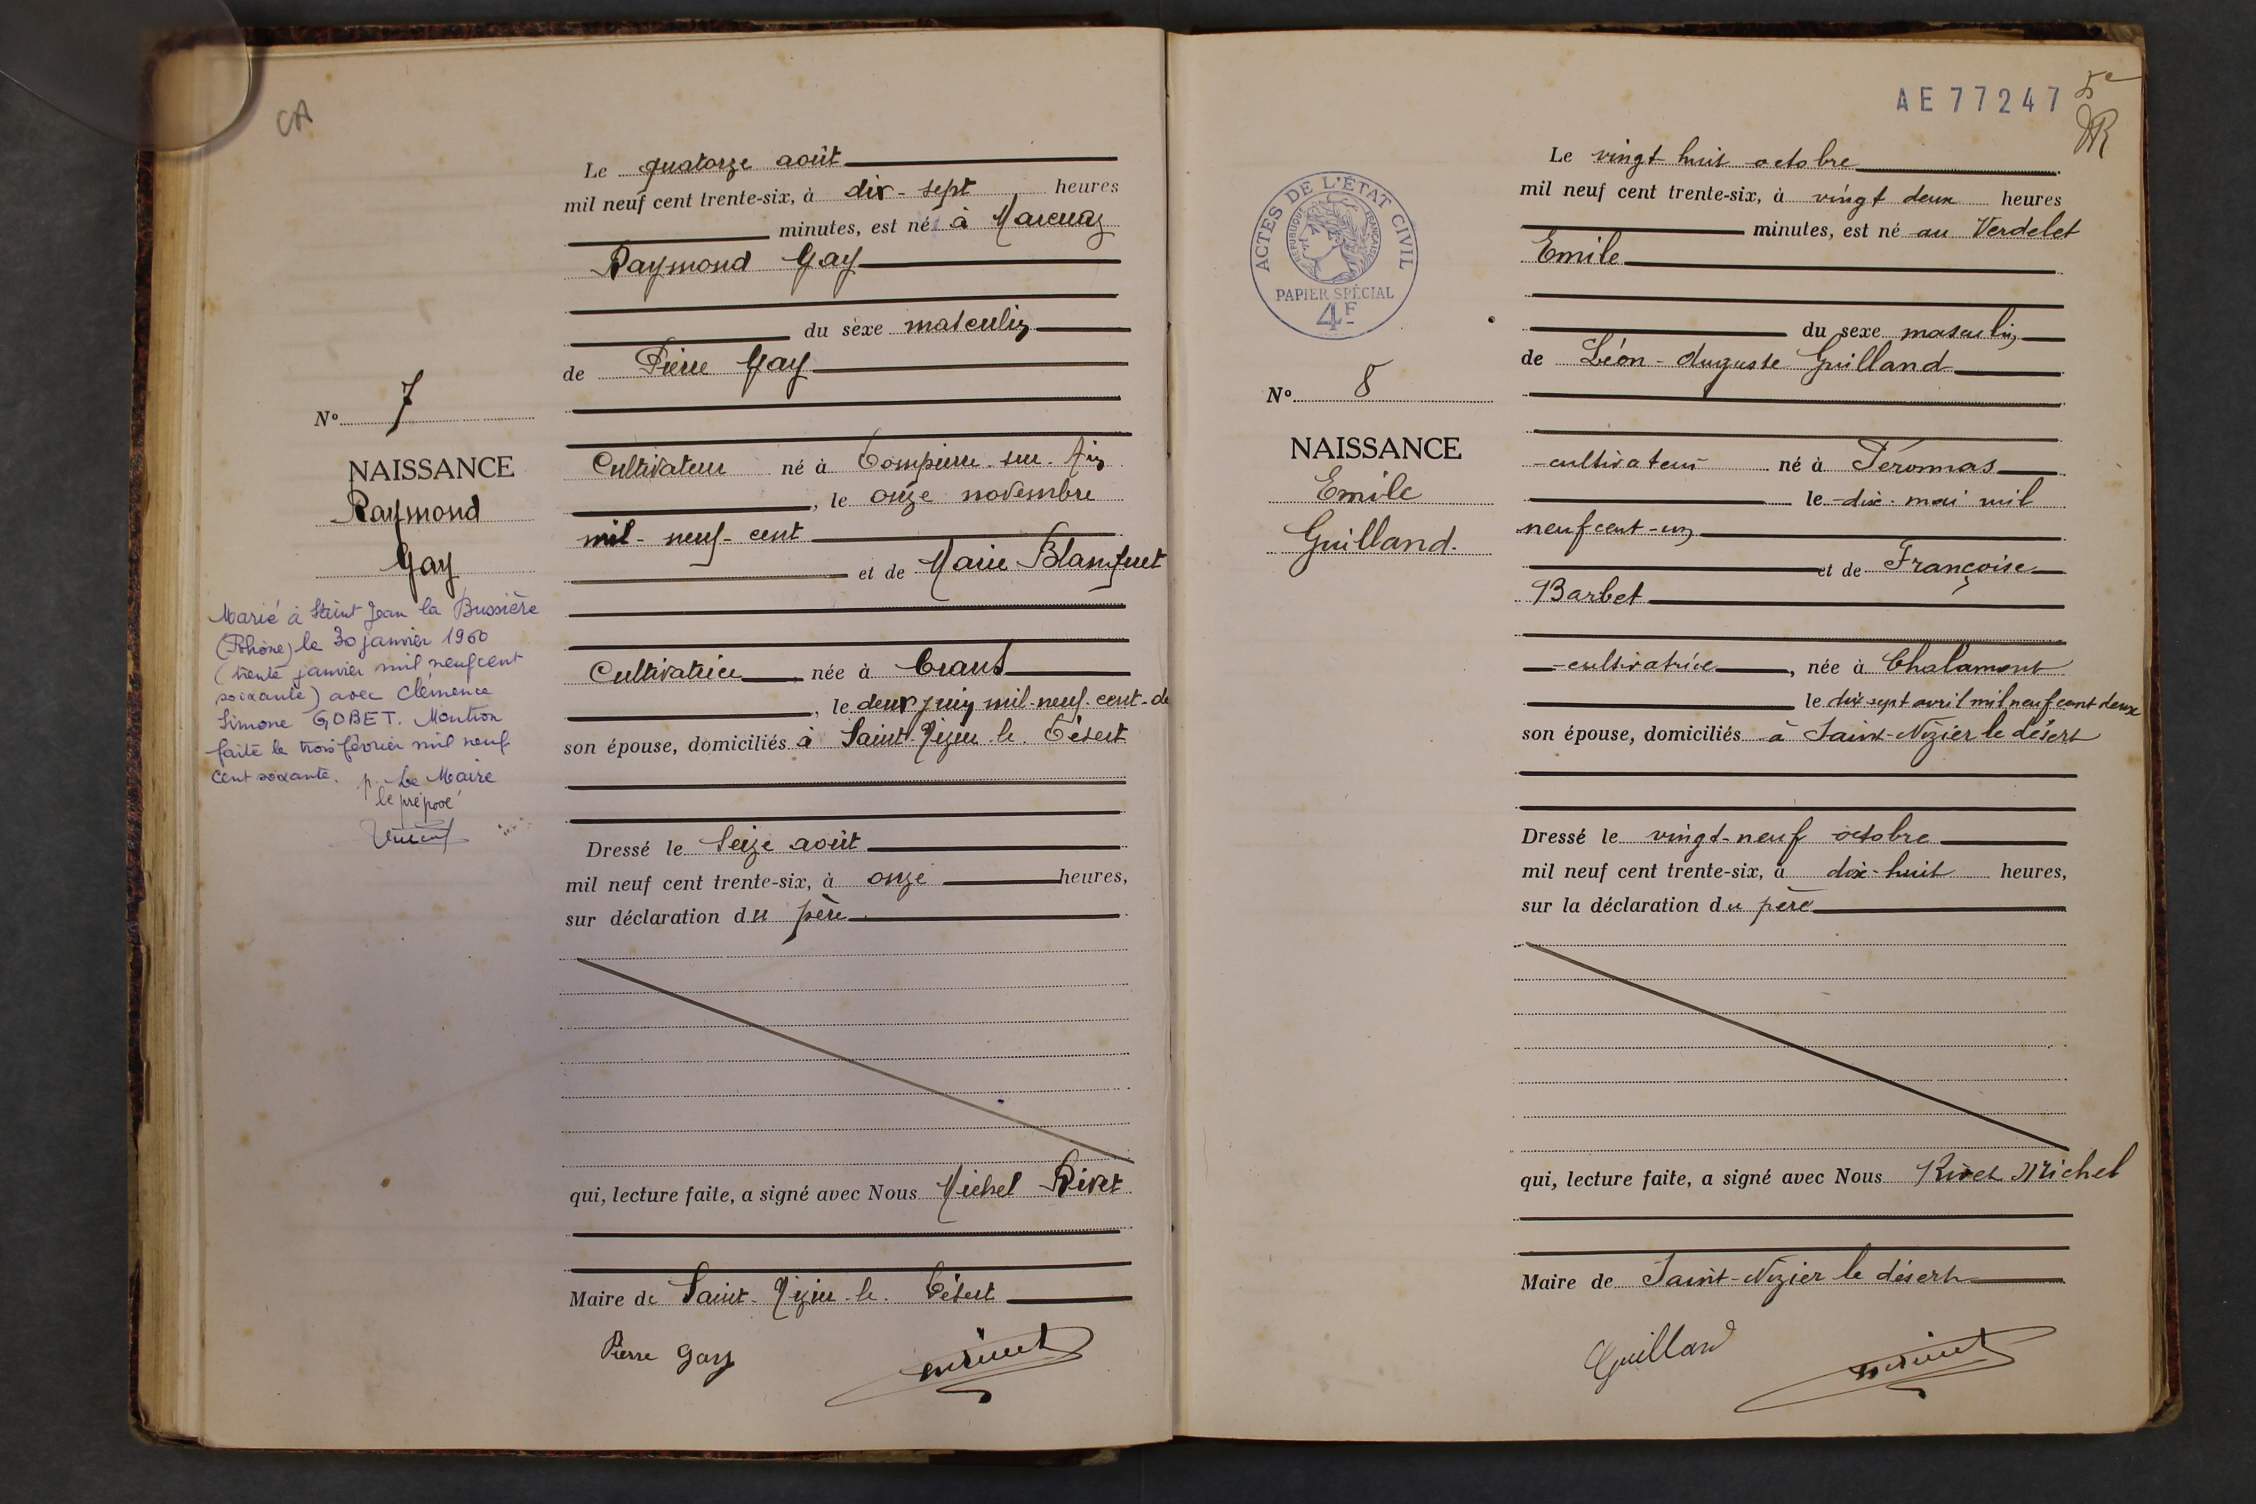 CA
Le quatorze août
mil neuf cent trente-six, à dix-sept heures
minutes, est né à Marcuaz
Raymond Gay
du sexe masculin
de Pierre Gay
N° 7
NAISSANCE
Raymond
Gay
Marié à Saint Jean la Bussière
(Rhône) le 30 janvier 1960
(trente janvier mil neuf cent
soixante) avec Clémence
Simone GOBET. Mention
faite le trois février mil neuf
cent soixante. p. Le Maire
le préposé
Cultivateur né à Dompierre-sur-Ain
, le onze novembre
mil-neuf-cent
et de Marie Blanquet
Cultivatrice, née à Crans
, le deux juin mil-neuf-cent-de
son épouse, domiciliés à Saint-Nizier-le-Désert
Dressé le Seize août
mil neuf cent trente-six, à onze heures,
sur déclaration du père
qui, lecture faite, a signé avec Nous Michel Rivet
Maire de Saint-Nizier-le-Désert
Pierre Gay
AE77247
5e
ACTES DE L'ÉTAT CIVIL
RÉPUBLIQUE FRANÇAISE
PAPIER SPÉCIAL
4F
N° 8
NAISSANCE
Emile
Guilland.
Le vingt huit octobre
mil neuf cent trente-six, à vingt deux heures
minutes, est né au Verdelet
Emile
du sexe masculin
de Léon-Auguste Guilland
cultivateur né à Péronnas
le dix mai mil
neuf cent-un
et de Françoise
Barbet
cultivatrice, née à Chalamont
le dix sept avril mil neuf cent deux
son épouse, domiciliés à Saint-Nizier le désert
Dressé le vingt-neuf octobre
mil neuf cent trente-six, à dix-huit heures,
sur la déclaration du père
qui, lecture faite, a signé avec Nous Rivet Michel
Maire de Saint-Nizier le désert
Guilland